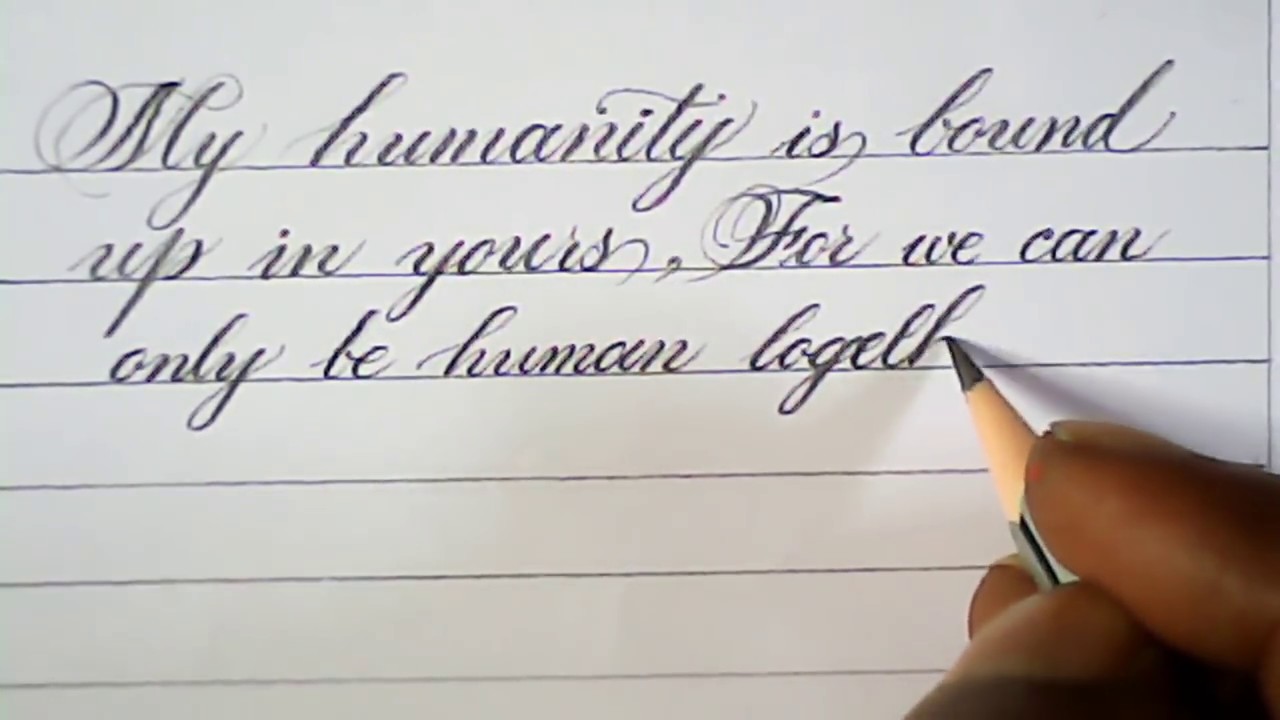 My humanity is bound
up in yours, For we can
only be human togeth